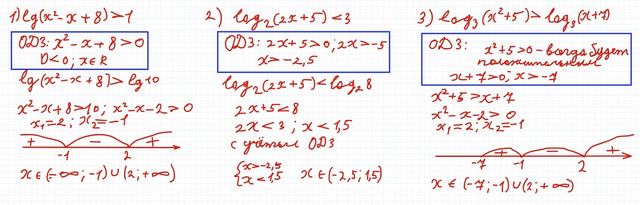 1) lg(x²-x+8)>1
ОДЗ: x²-x+8>0
D<0; x∈R
lg(x²-x+8)>lg10
x²-x+8>10; x²-x-2>0
x₁=2; x₂=-1
+ - +
-1 2
x∈(-∞;-1)∪(2;+∞)
2) log₂(2x+5)<3
ОДЗ: 2x+5>0; 2x>-5
x>-2,5
log₂(2x+5)<log₂8
2x+5<8
2x<3; x<1,5
с учётом ОДЗ
{x>-2,5
{x<1,5 x∈(-2,5;1,5)
3) log₃(x²+5)>log₃(x+7)
ОДЗ: x²+5>0 - всегда будет
положительным
x+7>0; x>-7
x²+5>x+7
x²-x-2>0
x₁=2; x₂=-1
+ - +
-7 -1 2
x∈(-7;-1)∪(2;+∞)